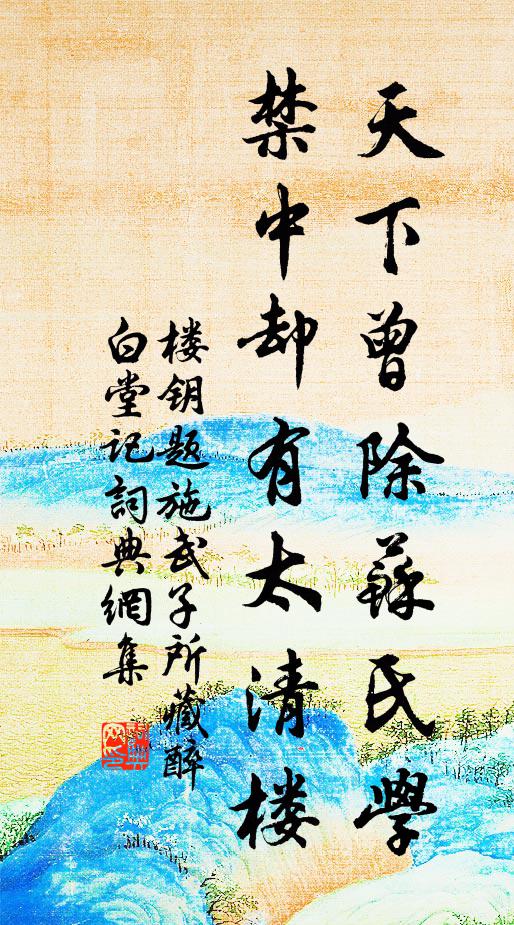 天下曾除蘇氏學
禁中却有太清楼
楼钥题施武子所藏醉
白堂记詞典網集